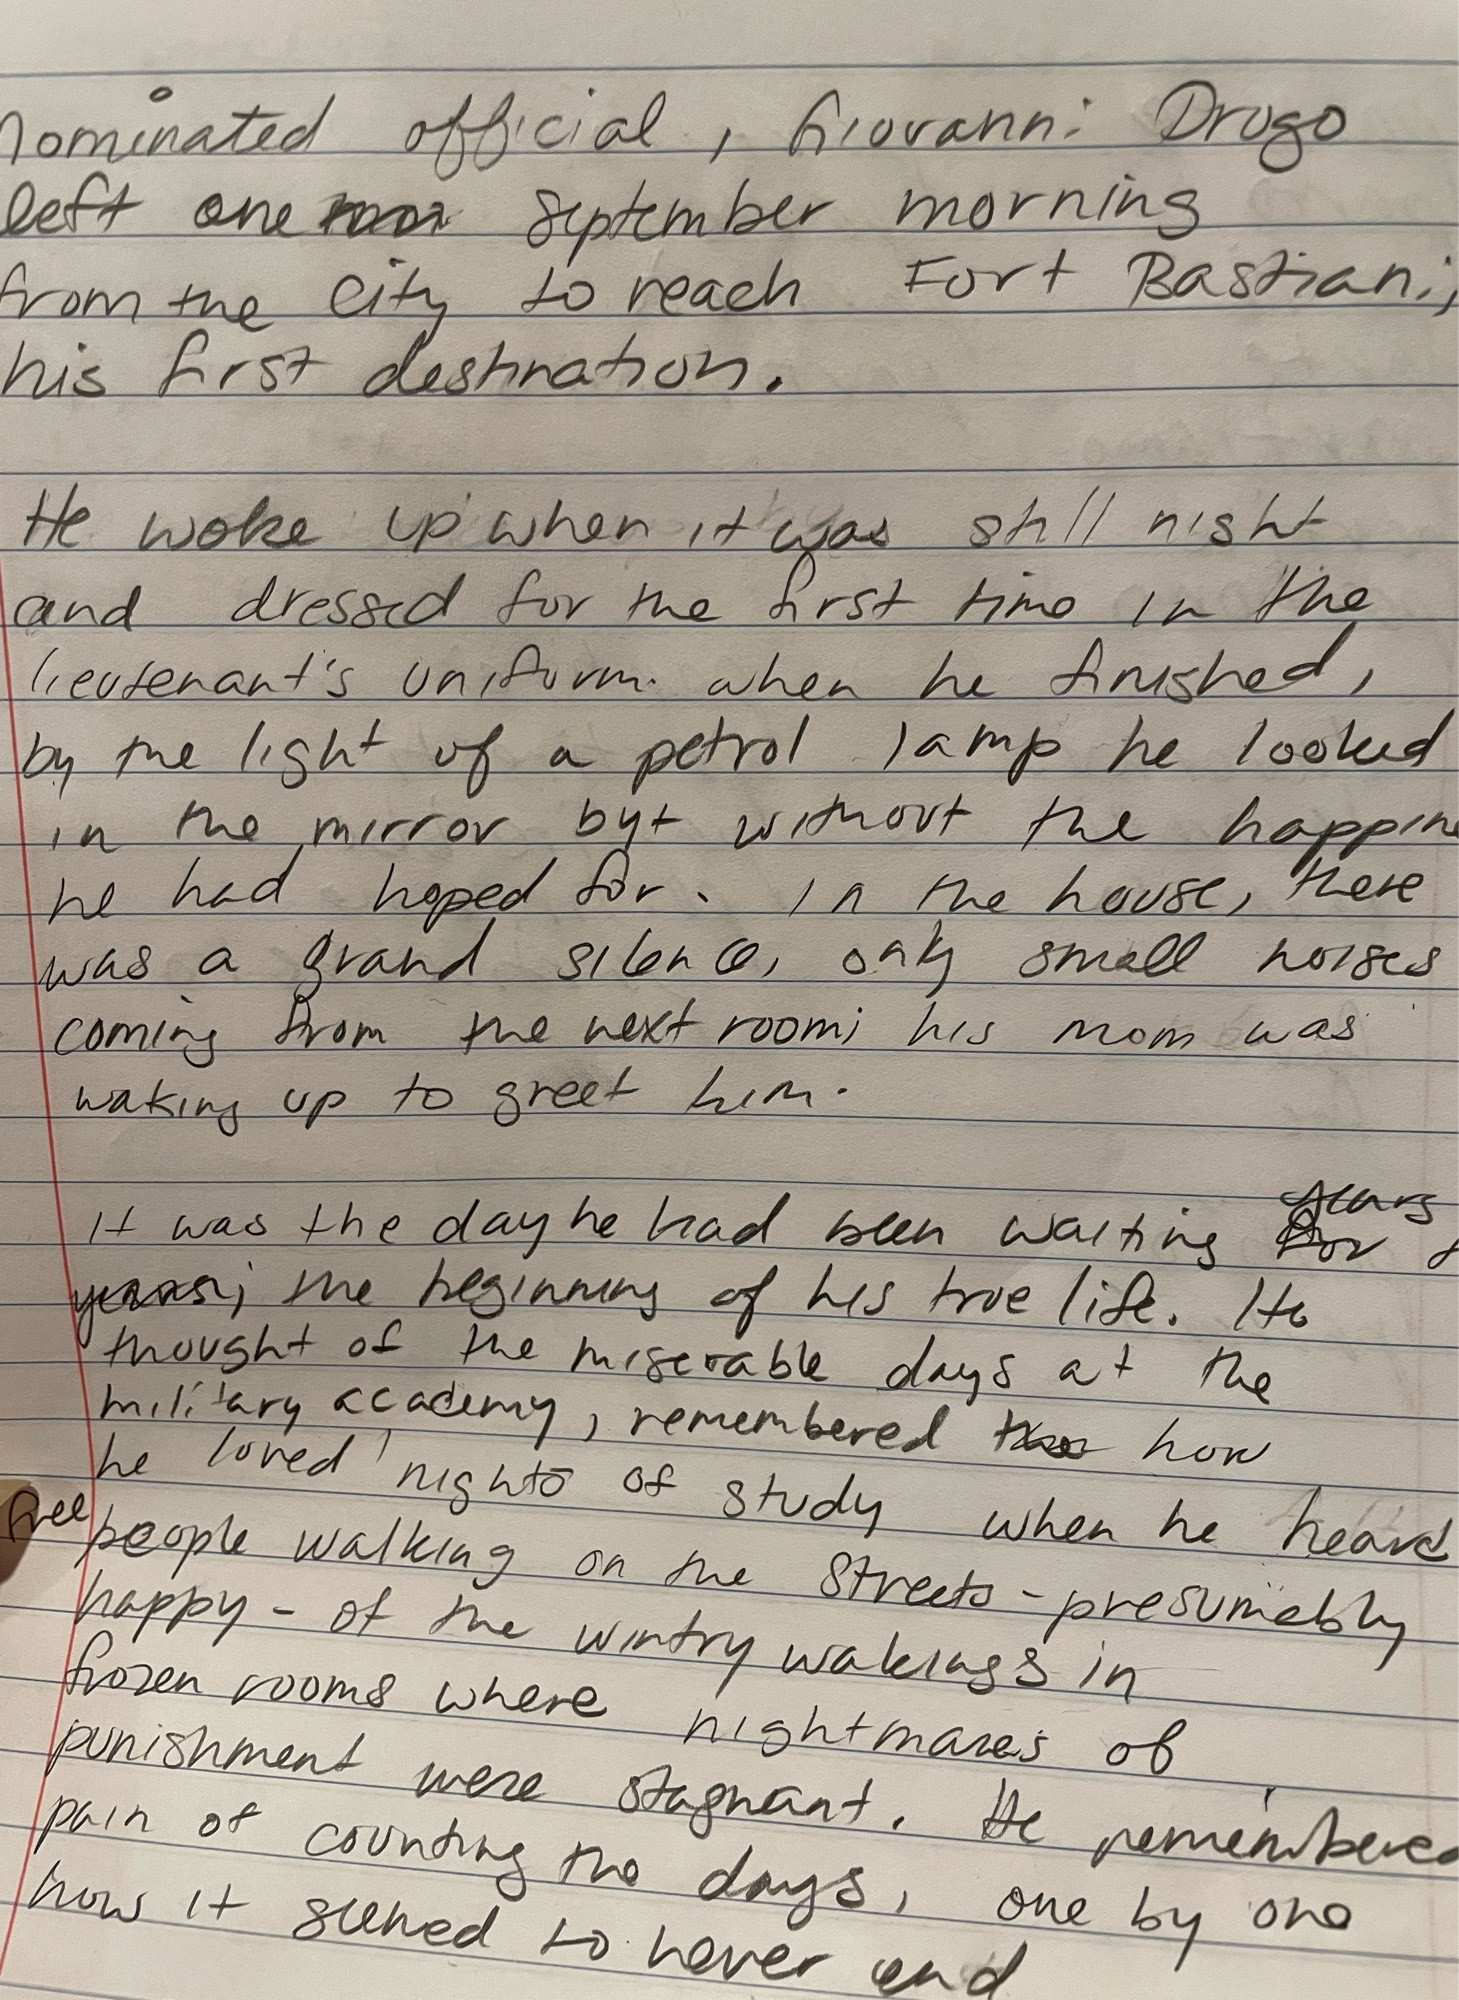 Nominated official, Giovanni Drogo
left one september morning
from the city to reach Fort Bastiani,
his first destination.
He woke up when it was still night
and dressed for the first time in the
lieutenant's uniform. when he finished,
by the light of a petrol lamp he looked
in the mirror byt without the happin
he had hoped for. In the house, there
was a grand silence, only small noises
coming from the next room; his mom was
waking up to greet him.
It was the day he had been waiting years
years; the beginning of his true life. He
thought of the miserable days at the
military academy, remembered how
he loved nights of study when he heard
free people walking on the streets - presumably
happy - of the wintry wakings in
frozen rooms where nightmares of
punishment were stagnant. He remembered
pain of counting the days, one by one
how it seemed to never end